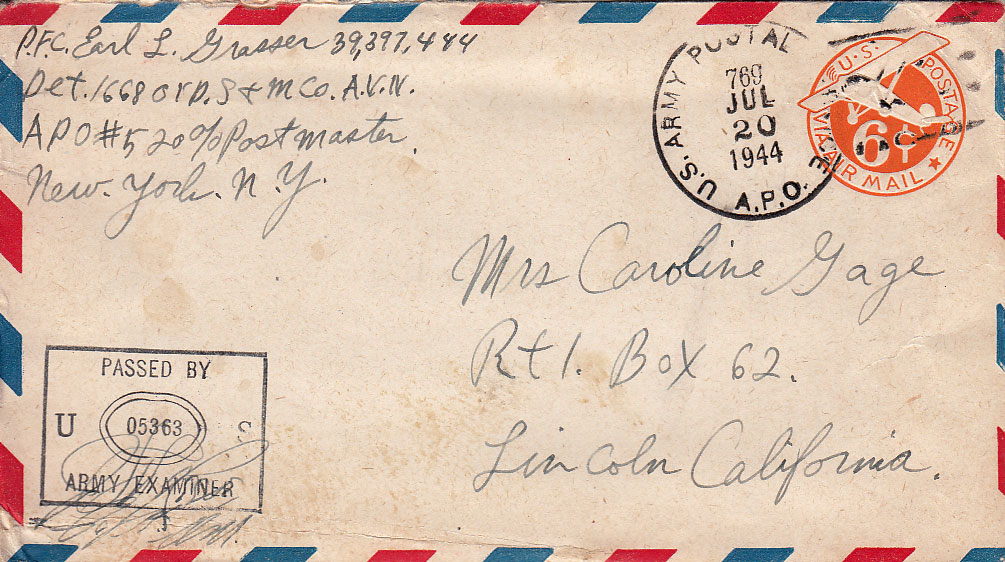 P.F.C. Earl L. Grasser 39,397,444
Det. 1668 ord. S & M Co. A.V.N.
APO #520 % Postmaster.
New. York. N.Y.
U.S. ARMY POSTAL
769
JUL
20
1944
A.P.O.
U.S. POSTAGE
6¢
VIA AIR MAIL
Mrs Caroline Gage
Rt 1. Box 62.
Lincoln California.
PASSED BY
U 05363 S
ARMY EXAMINER